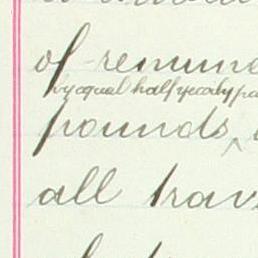 of remune
by equal half yearly pa
pounds,
all trav